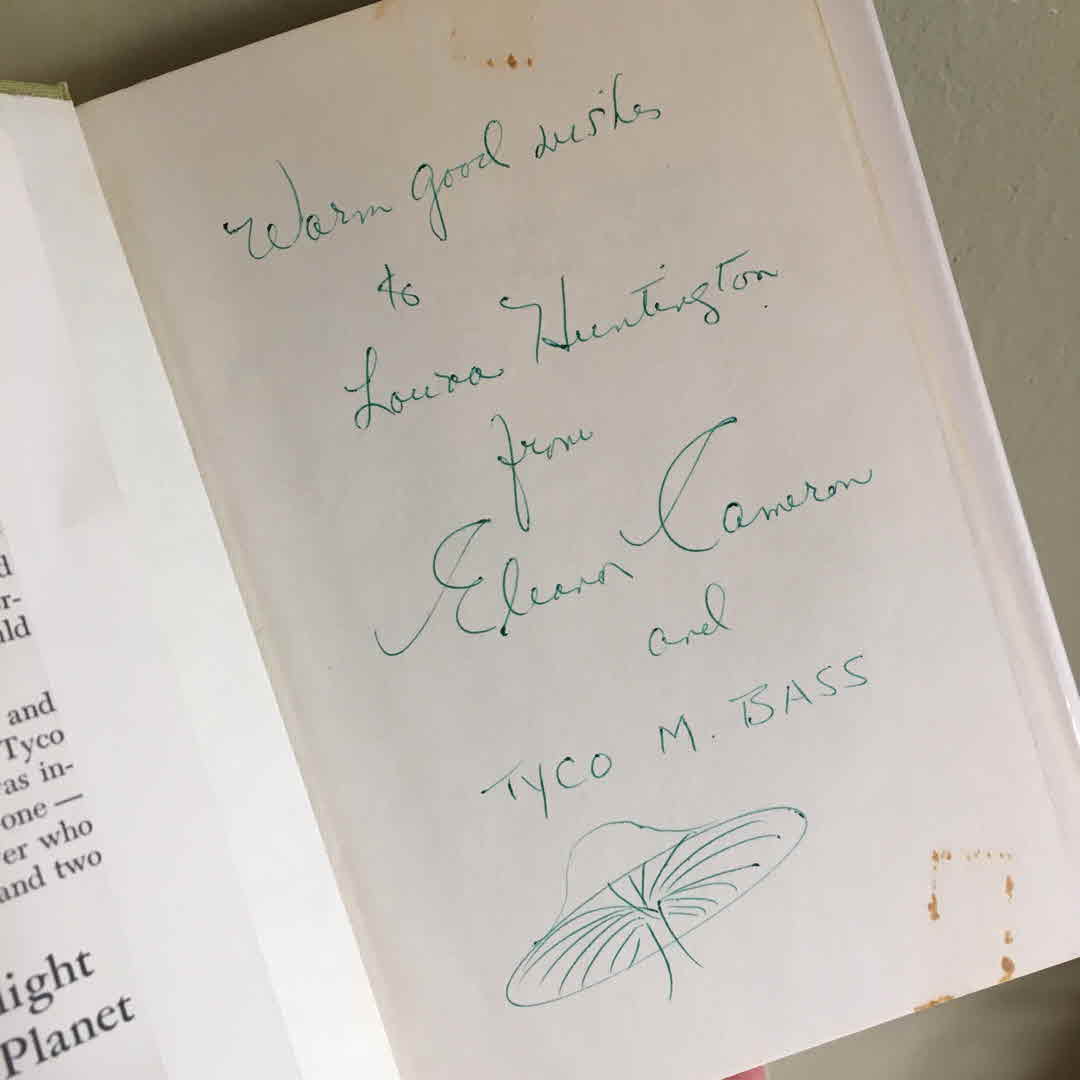 Warm good wishes
to
Louisa Huntington
from
Eleanor Cameron
and
TYCO M. BASS
d
r-
ld
and
Tyco
as in-
one —
er who
and two
light
Planet